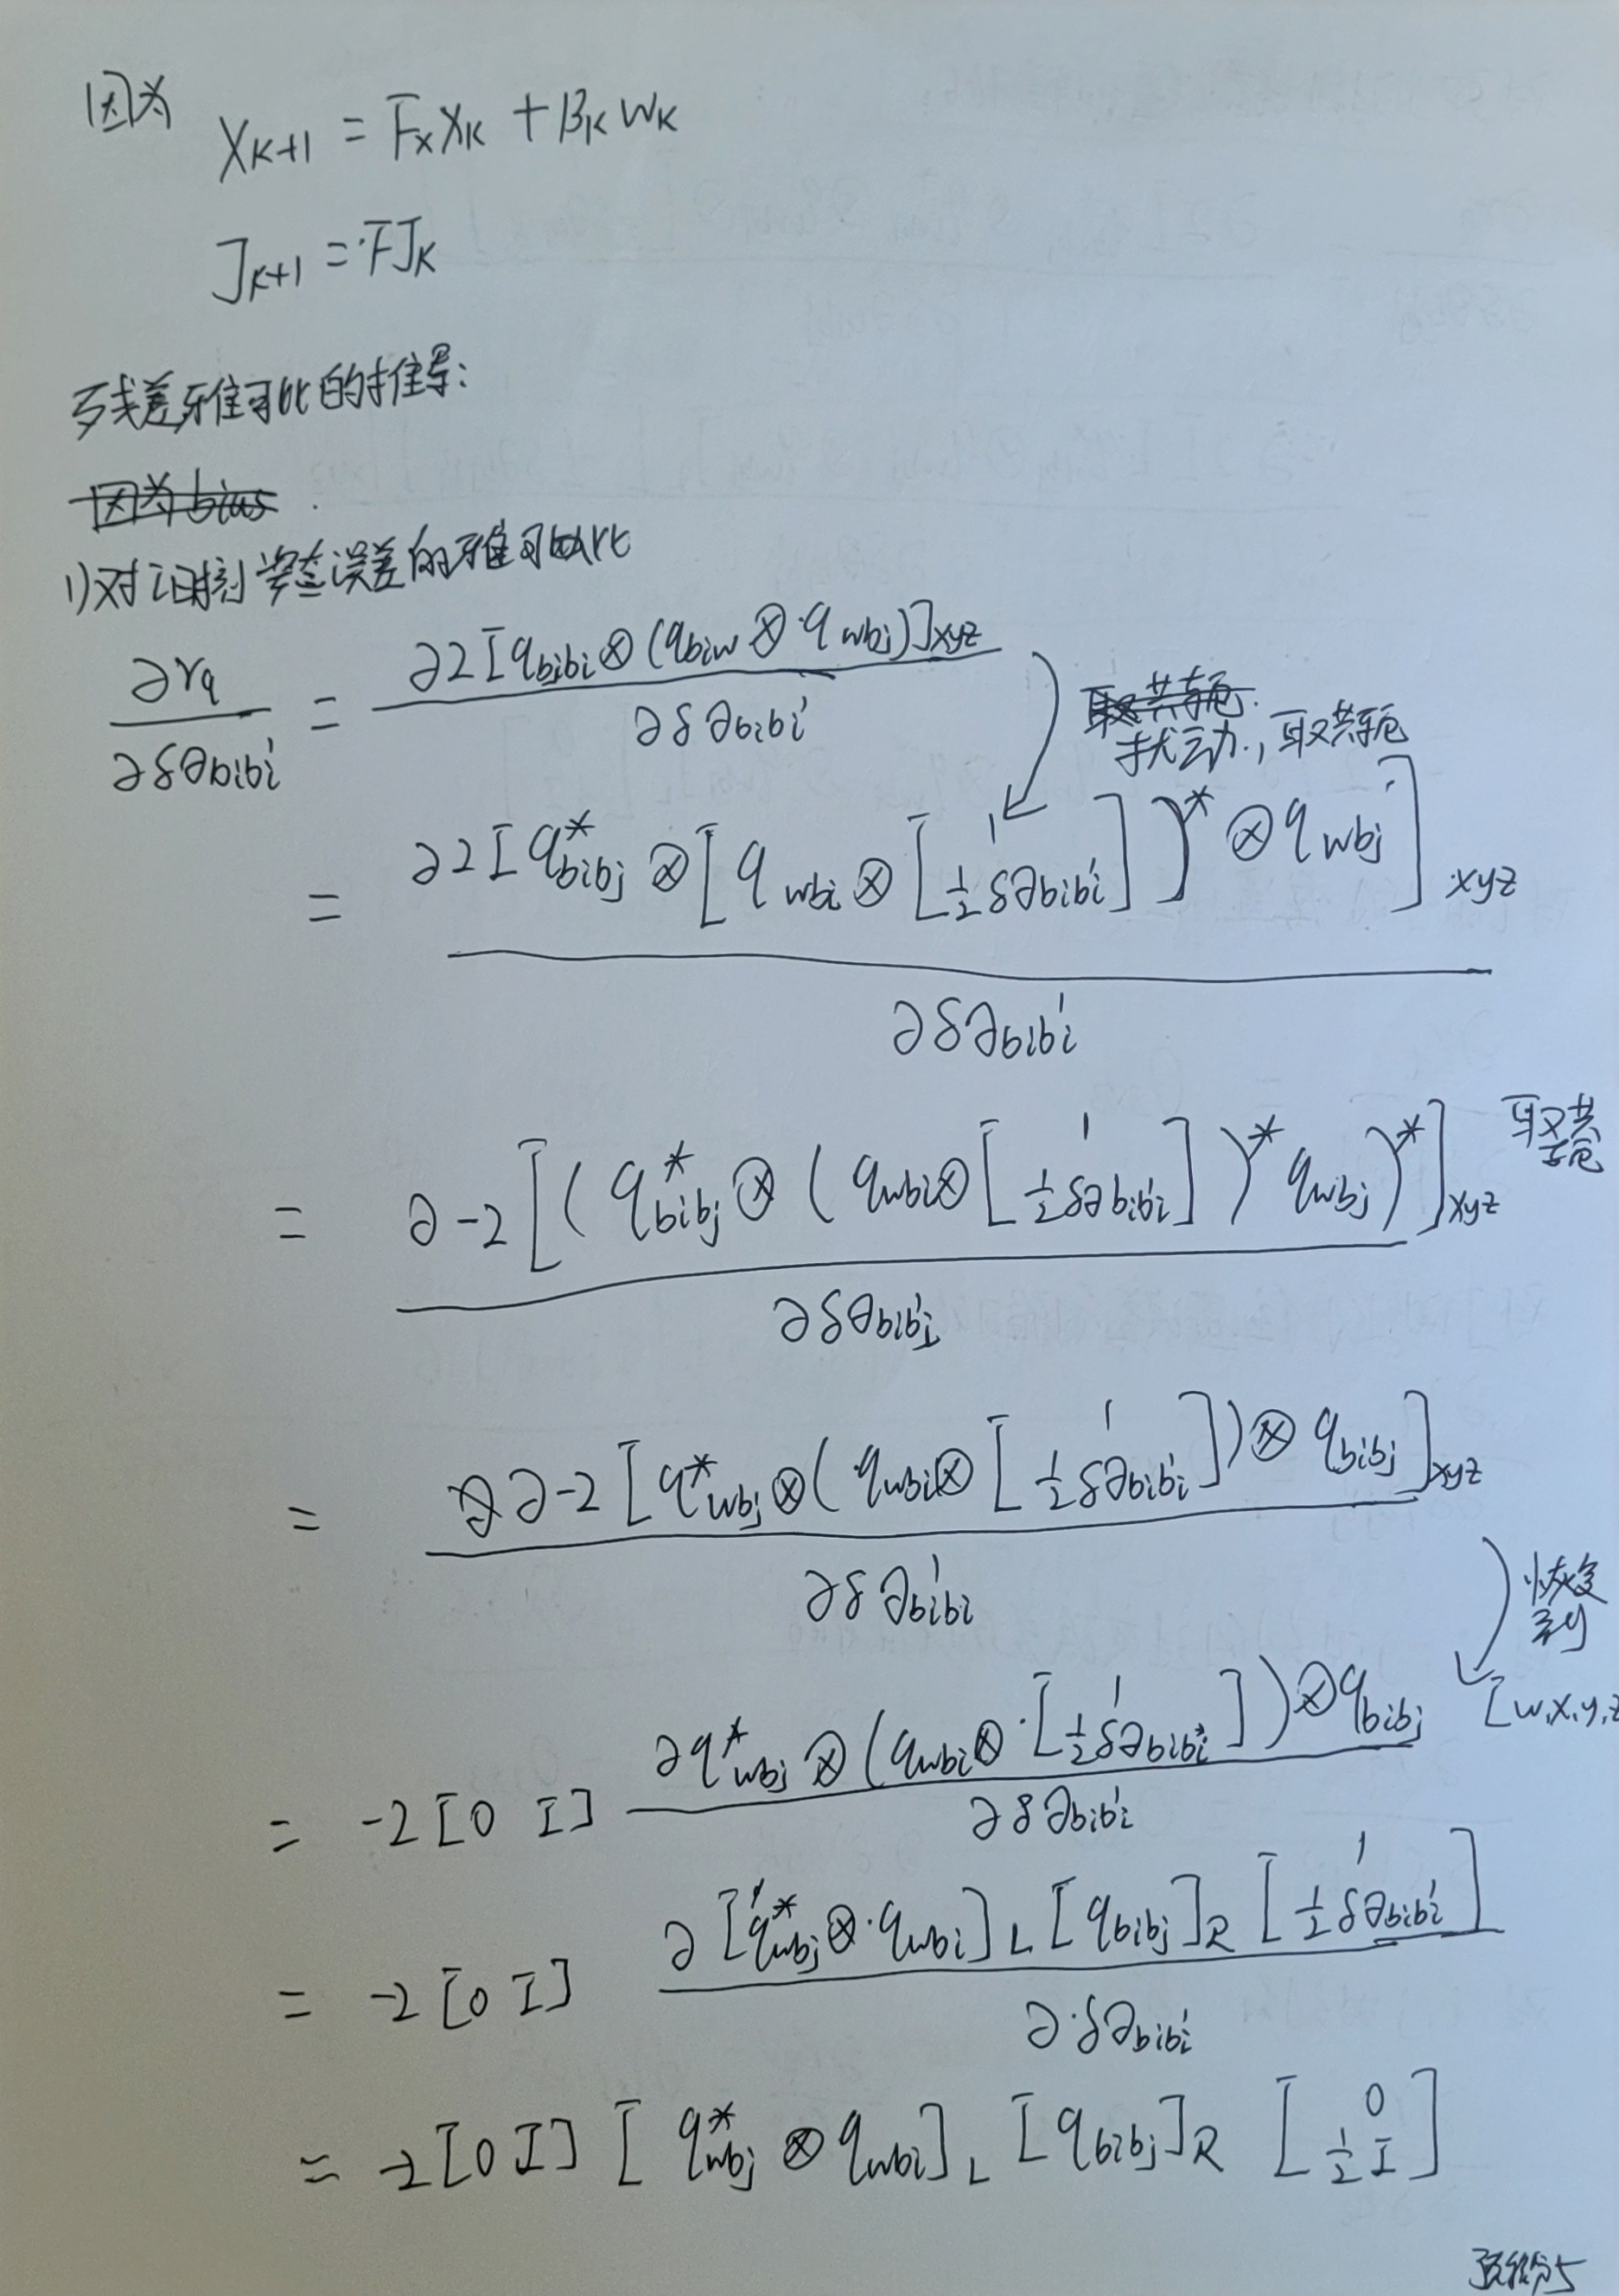 因为 X_{K+1} = F_x X_K + B_K W_K
J_{K+1} = F J_K
残差雅可比的推导:
因为 bias
1)对i时刻姿态误差的雅可比
∂r_q / ∂δθ_{bibi'} = ∂2[q_{bjbi} ⊗ (q_{biw} ⊗ q_{wbj})]_{xyz} / ∂δθ_{bibi'}
取共轭.
扰动, 取共轭
= ∂2[q*_{bibj} ⊗ [q_{wbi} ⊗ [1 ; ½δθ_{bibi'}])* ⊗ q_{wbj}]_{xyz} / ∂δθ_{bibi'}
= ∂-2[(q*_{bibj} ⊗ (q_{wbi} ⊗ [1 ; ½δθ_{bibi'}])* q_{wbj})*]_{xyz} / ∂δθ_{bibi'} 取共轭
= ∂-2[q*_{wbj} ⊗ (q_{wbi} ⊗ [1 ; ½δθ_{bibi'}]) ⊗ q_{bibj}]_{xyz} / ∂δθ_{bibi'}
恢复到
[w,x,y,z
= -2[0 I] ∂q*_{wbj} ⊗ (q_{wbi} ⊗ [1 ; ½δθ_{bibi'}]) ⊗ q_{bibj} / ∂δθ_{bibi'}
= -2[0 I] ∂[q*_{wbj} ⊗ q_{wbi}]_L [q_{bibj}]_R [1 ; ½δθ_{bibi'}] / ∂δθ_{bibi'}
= -2[0 I] [q*_{wbj} ⊗ q_{wbi}]_L [q_{bibj}]_R [0 ; ½I]